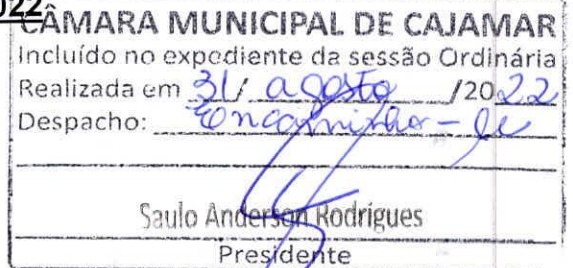 022
CÂMARA MUNICIPAL DE CAJAMAR
Incluído no expediente da sessão Ordinária
Realizada em 31/ agosto /2022
Despacho: Encaminho-se
Saulo Anderson Rodrigues
Presidente